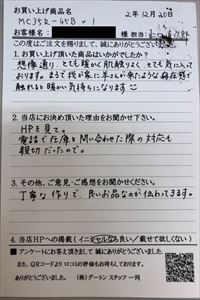 お買い上げ商品名
MC352-45B × 1
2年12月20日
お客様名：
様 担当：
この度はご注文を賜りまして、誠にありがとうございます。
1. お買い上げ頂いた商品はいかがでしたか？
想像通り、とても暖かく肌触りよく、とても気に入って
おります。まるで我が家に羊さんが来たような存在感で
触れると暖かい気持ちになります
2. 当店にお決め頂いた理由をお聞かせ下さい。
HPを見て。
電話で在庫を問い合わせた際の対応も
親切だったので。
3. その他、ご意見・ご感想をお聞かせください。
丁寧な作りで、良いお品なのが伝わってきます。
4. 当店HPへの掲載（イニシャルなら良い／載せて欲しくない）
■アンケートにお答え頂きまして 誠にありがとうございました。
また、QRコードより口コミの評価もお待ちしております。
ありがとうございました。 （株）ダートン スタッフ 一同